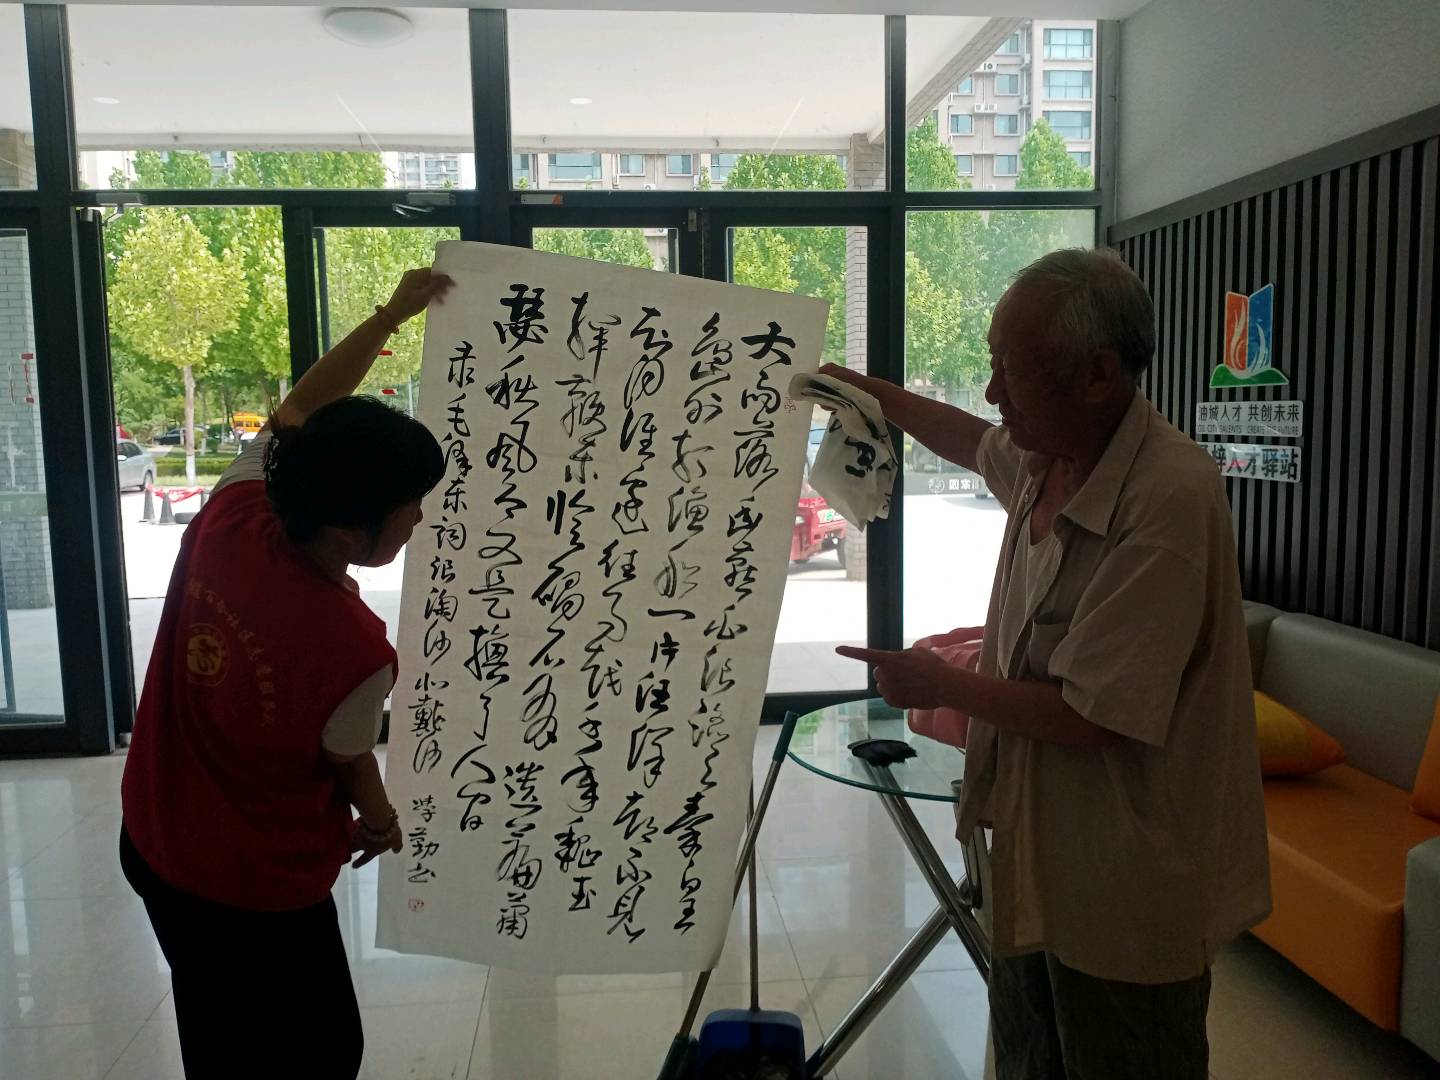 大雨落幽燕白浪滔天秦皇
岛外打渔船一片汪洋都不见
知向谁边往事越千年魏武
挥鞭东临碣石有遗篇萧
瑟秋风今又是换了人间
录毛泽东词浪淘沙北戴河 学勤书
油城人才 共创未来
OIL CITY TALENTS CREATE THE FUTURE
梓人才驿站
社区志愿服务队